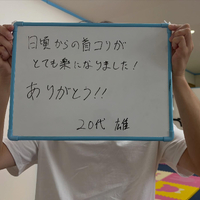 日頃からの首コリが
とても楽になりました！
ありがとう！！
20代 雄